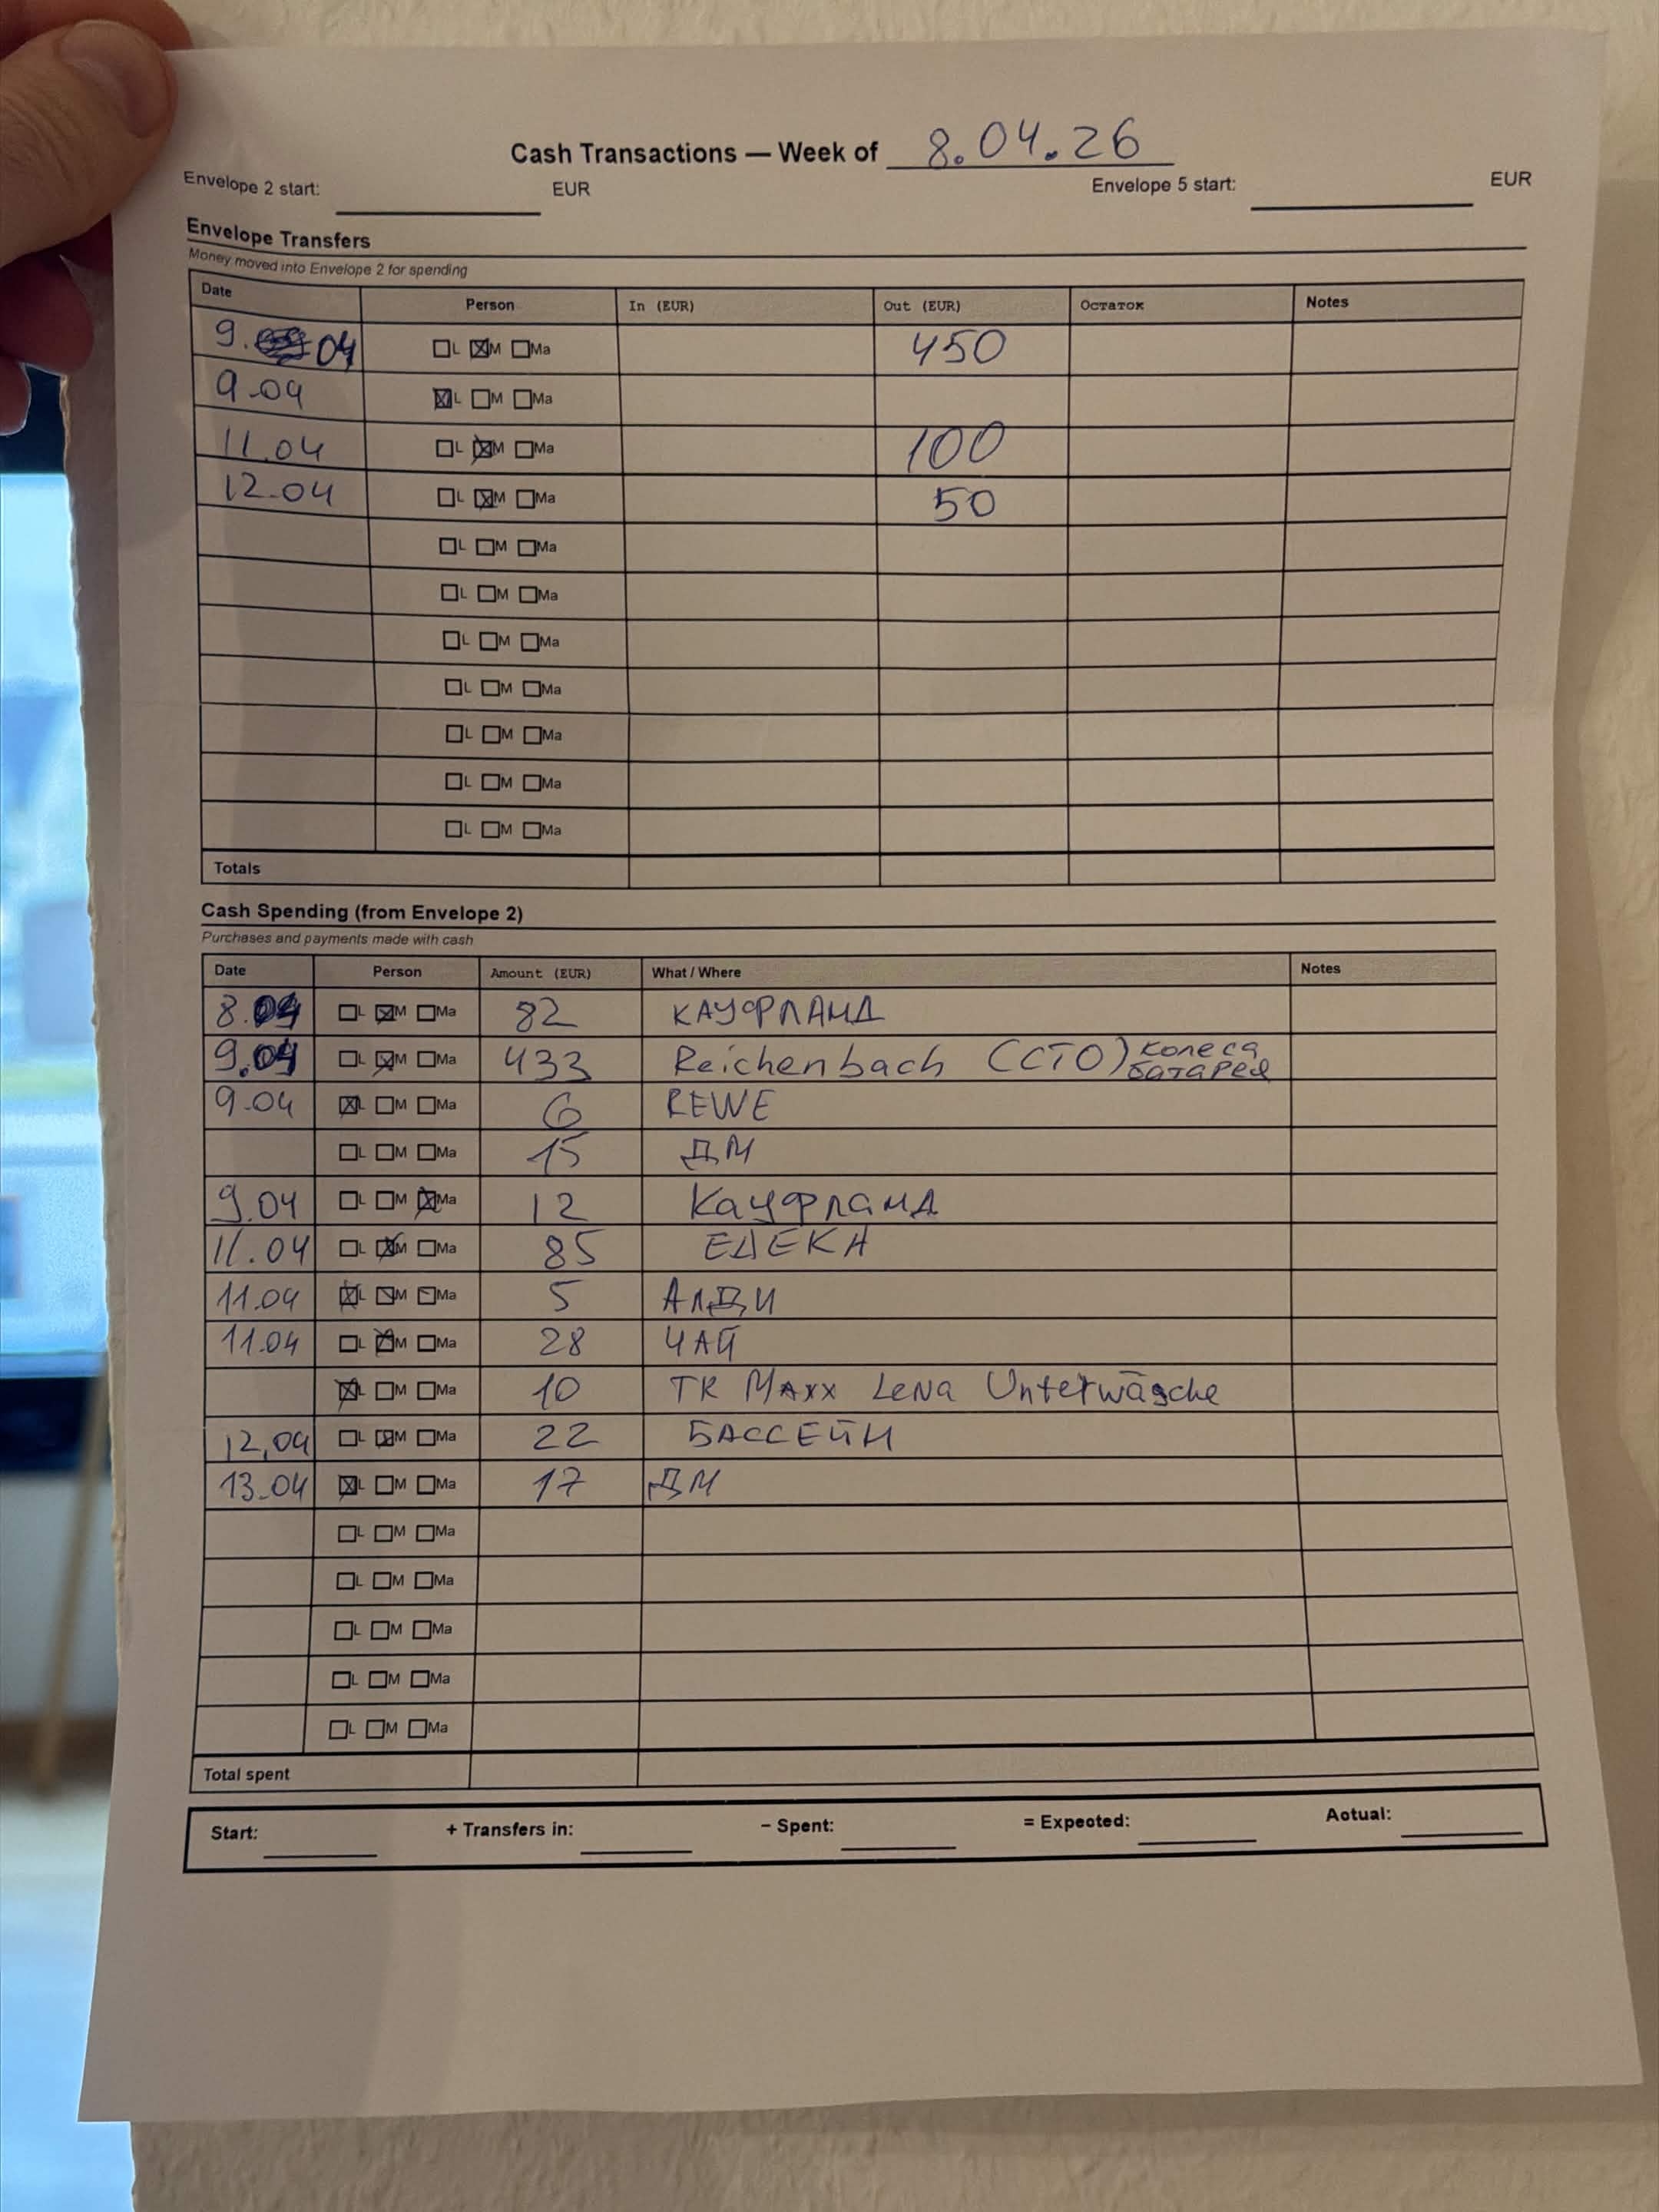 Cash Transactions — Week of 8.04.26
Envelope 2 start: EUR Envelope 5 start: EUR
Envelope Transfers
Money moved into Envelope 2 for spending
Date Person In (EUR) Out (EUR) Остаток Notes
9. 04 ☐L ☒M ☐Ma 450
9.04 ☒L ☐M ☐Ma
11.04 ☐L ☒M ☐Ma 100
12.04 ☐L ☒M ☐Ma 50
☐L ☐M ☐Ma
☐L ☐M ☐Ma
☐L ☐M ☐Ma
☐L ☐M ☐Ma
☐L ☐M ☐Ma
☐L ☐M ☐Ma
☐L ☐M ☐Ma
Totals
Cash Spending (from Envelope 2)
Purchases and payments made with cash
Date Person Amount (EUR) What / Where Notes
8.04 ☐L ☒M ☐Ma 82 КАУФЛАНД
9.04 ☐L ☒M ☐Ma 433 Reichenbach (СТО) колеса батарея
9.04 ☒L ☐M ☐Ma 6 REWE
☐L ☐M ☐Ma 15 ДМ
9.04 ☐L ☐M ☒Ma 12 Кауфланд
11.04 ☐L ☒M ☐Ma 85 ЕДЕКА
11.04 ☒L ☐M ☐Ma 5 Алди
11.04 ☐L ☒M ☐Ma 28 ЧАЙ
☒L ☐M ☐Ma 10 TK Maxx Lena Unterwäsche
12,04 ☐L ☒M ☐Ma 22 БАССЕЙН
13.04 ☒L ☐M ☐Ma 17 ДМ
☐L ☐M ☐Ma
☐L ☐M ☐Ma
☐L ☐M ☐Ma
☐L ☐M ☐Ma
☐L ☐M ☐Ma
Total spent
Start: + Transfers in: − Spent: = Expected: Actual: